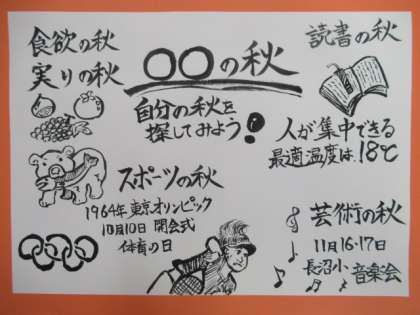 食欲の秋
実りの秋
〇〇の秋
自分の秋を
探してみよう!
読書の秋
人が集中できる
最適温度は、18℃
スポーツの秋
1964年東京オリンピック
10月10日 開会式
体育の日
芸術の秋
11月16・17日
長沼小音楽会